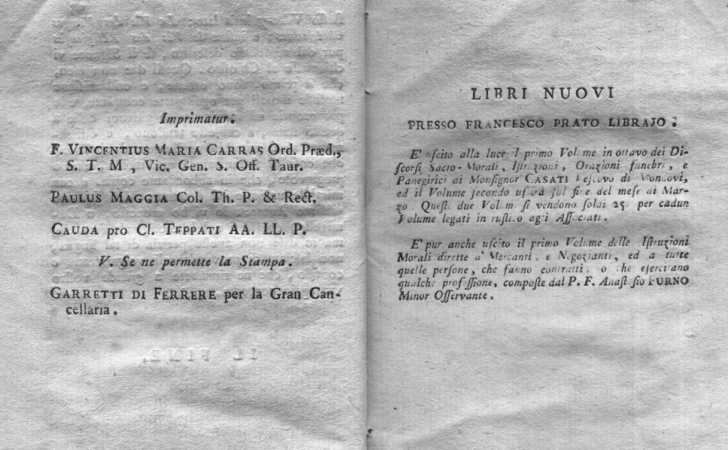 Imprimatur.
F. VINCENTIUS MARIA CARRAS Ord. Præd.,
S. T. M , Vic. Gen. S. Off. Taur.
PAULUS MAGGIA Col. Th. P. & Rect.
CAUDA pro Cl. TEPPATI AA. LL. P.
V. Se ne permette la Stampa.
GARRETTI DI FERRERE per la Gran Can-
cellaria.
IL FINE.
LIBRI NUOVI
PRESSO FRANCESCO PRATO LIBRAJO:
E' uscito alla luce il primo Volume in ottavo dei Di-
scorsi Sacro-Morali, Istruzioni, Orazioni funebri, e
Panegirici di Monsignor CASATI Vescovo di Mondovì,
ed il Volume secondo uscirà sul fine del mese di Mar-
zo. Questi due Volumi si vendono soldi 25 per cadun
Volume legati in rustico agli Associati.
E' pur anche uscito il primo Volume delle Istruzioni
Morali dirette a' Mercanti, e Negozianti, ed a tutte
quelle persone, che fanno contratti, o che esercitano
qualche professione, composte dal P. F. Anastasio FURNO
Minor Osservante.